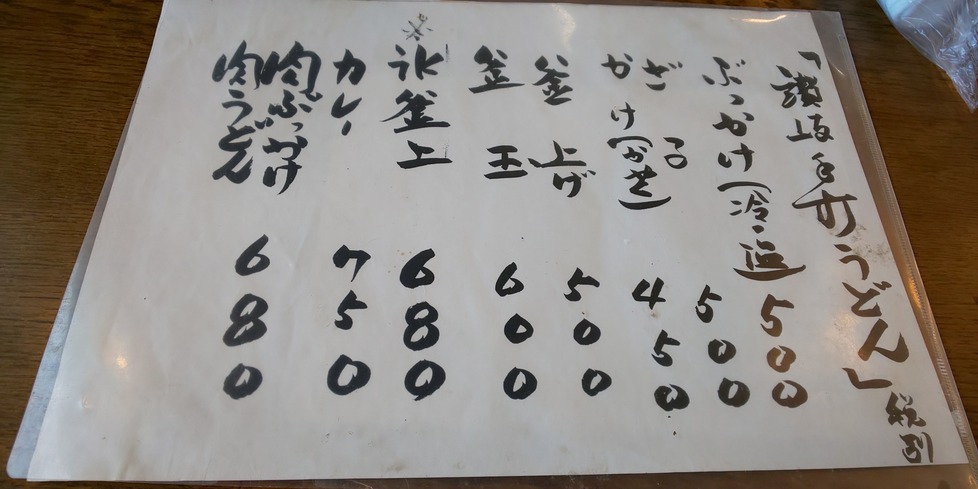 「讃岐手打うどん」税別
ぶっかけ(冷・温) 500
ざる 500
かけ(かせ) 450
釜上げ 500
釜玉 600
※氷釜上 680
カレー 750
肉ぶっかけ
肉うどん 680